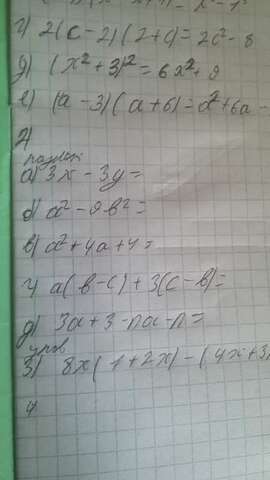 г) 2(c-2)(2+c)=2c²-8
д) (x²+3)²=6x²+9
е) (a-3)(a+6)=a²+6a-
2)
а) 3x-3y=
б) a²-9b²=
в) a²+4a+4=
г) a(b-c)+3(c-b)=
д) 3a+3-na-n=
упр
3) 8x(1+2x)-(4x+3